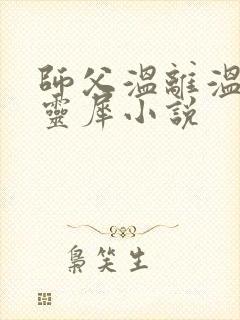 師父溫離溫
靈犀小說
梟笑生